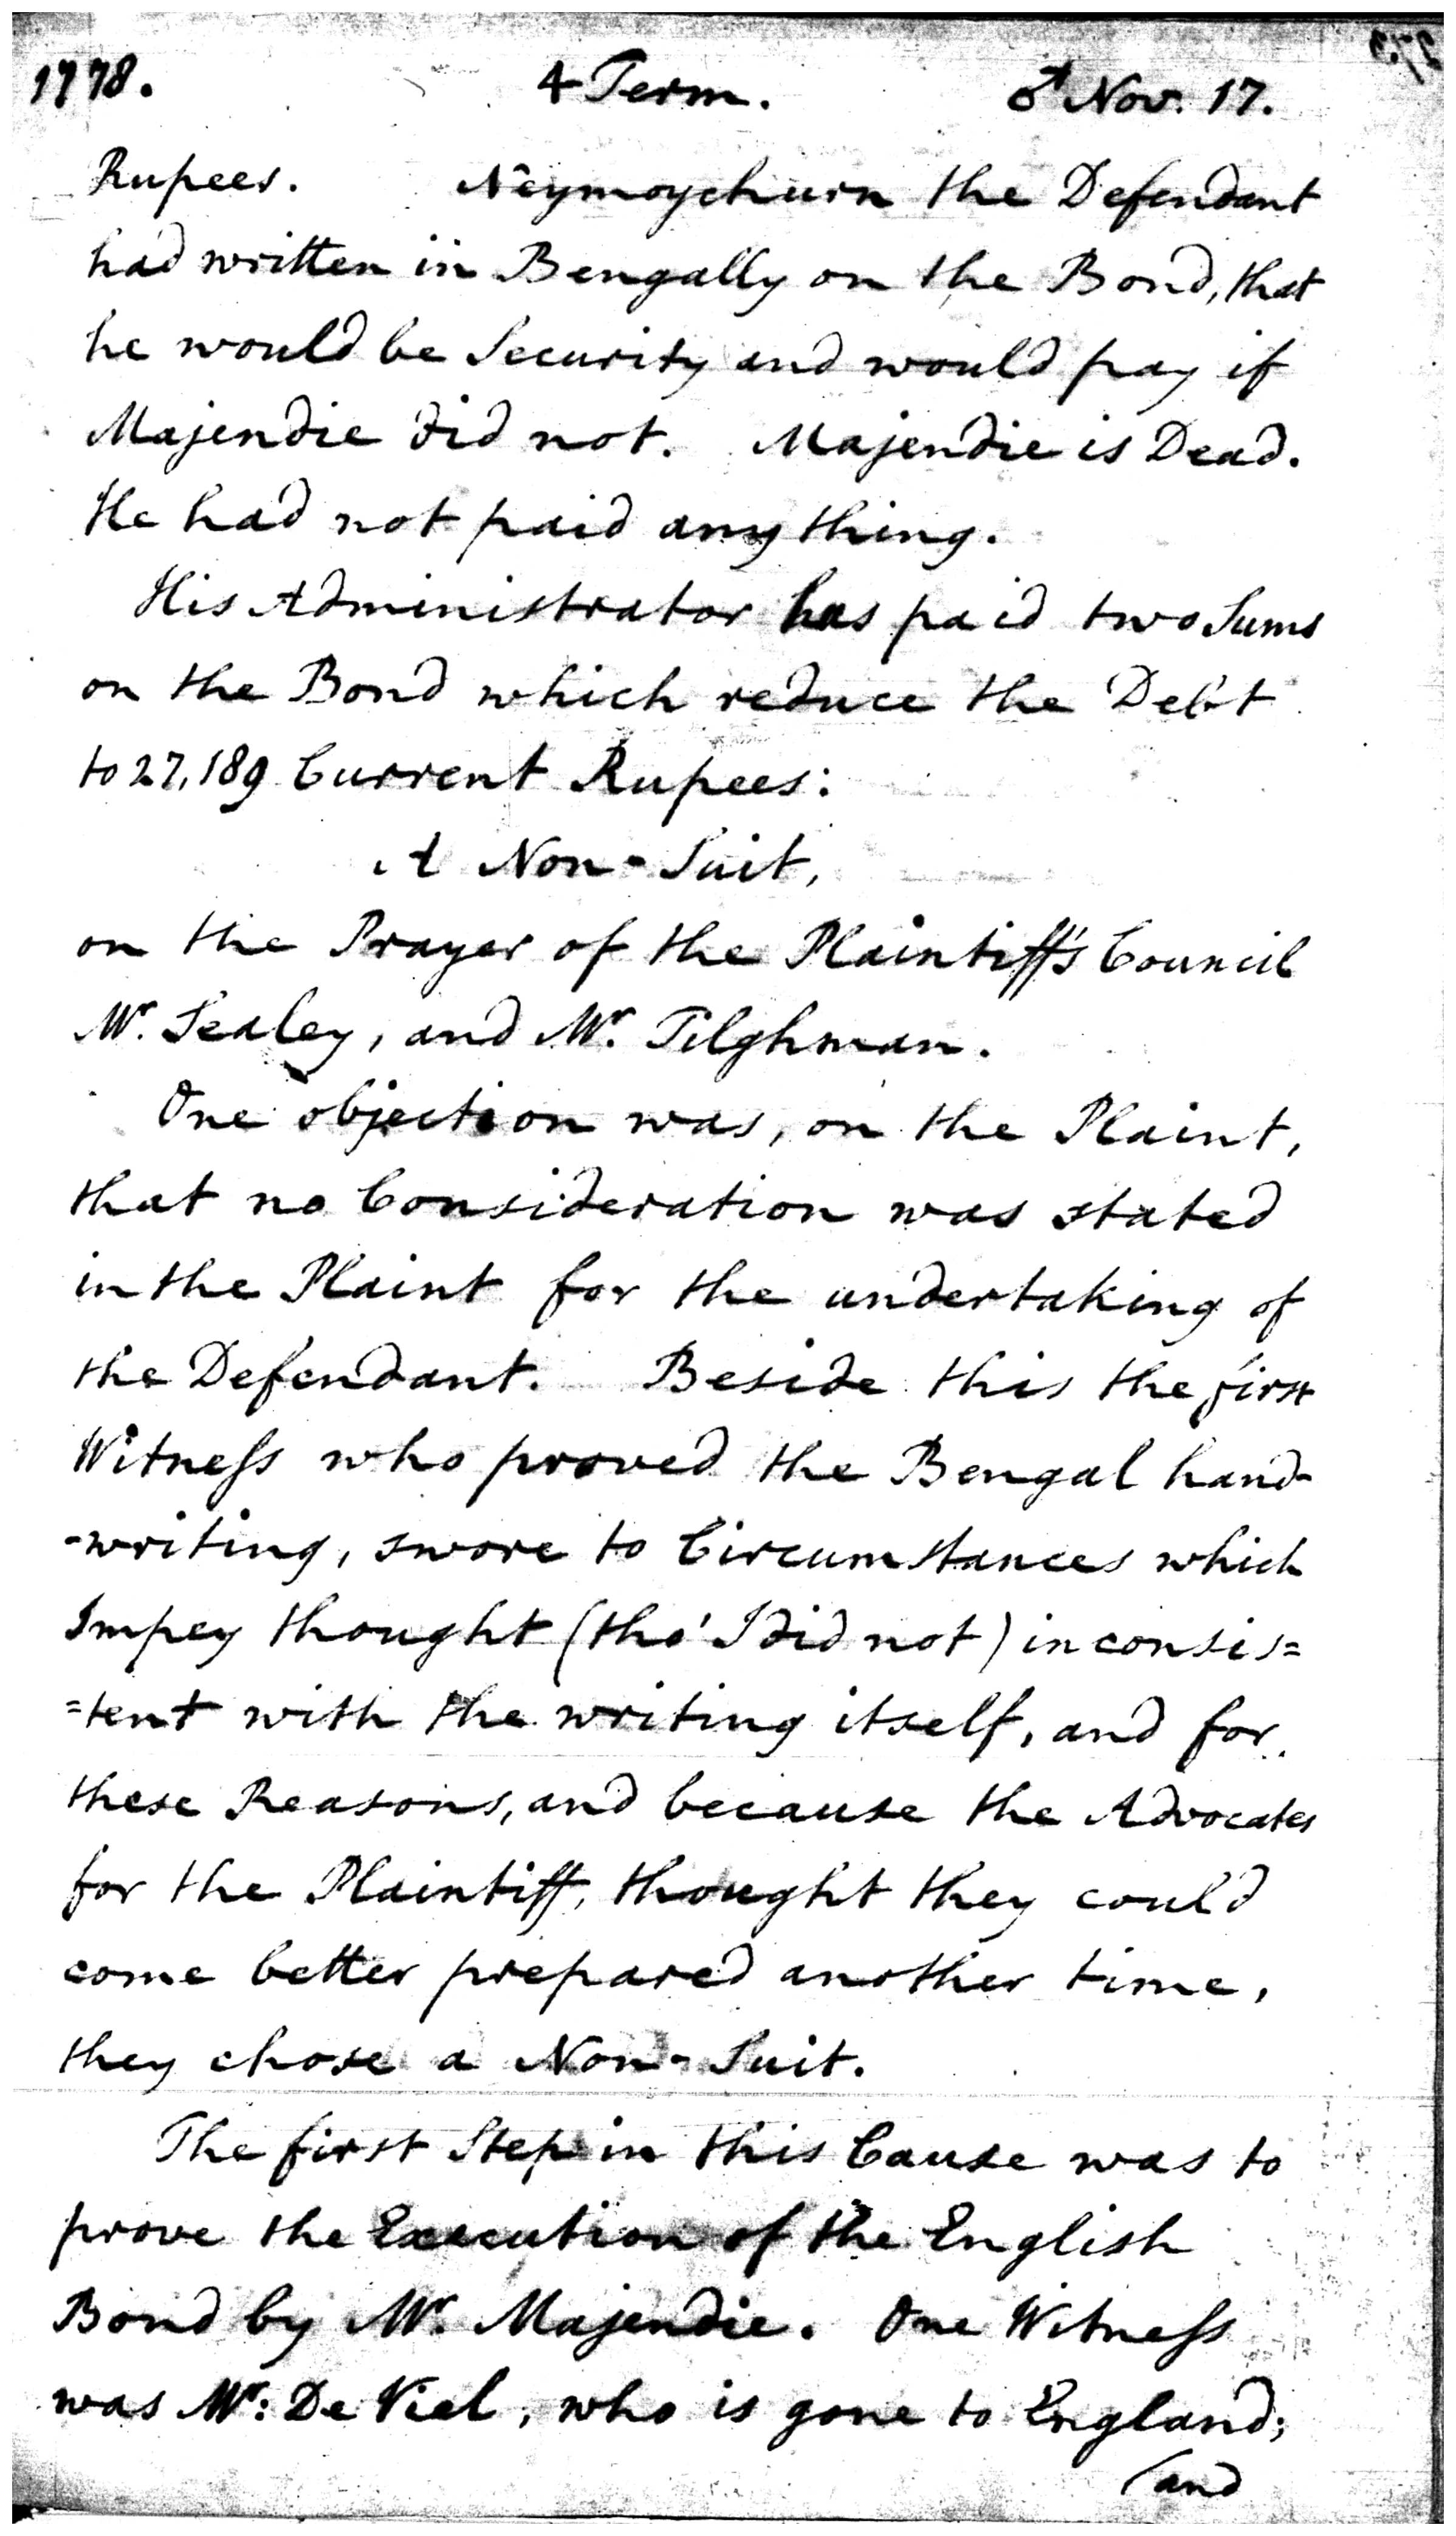 1778. 4 Term. ♂ Nov. 17.
Rupees. Neymoychurn the Defendant
had written in Bengally on the Bond, that
he would be Security and would pay if
Majendie did not. Majendie is Dead.
He had not paid any thing.
His Administrator has paid two Sums
on the Bond which reduce the Debt
to 27,189 Current Rupees:
A Non-Suit,
on the Prayer of the Plaintiff's Council
Mr. Sealey, and Mr. Tilghman.
One objection was, on the Plaint,
that no Consideration was stated
in the Plaint for the undertaking of
the Defendant. Beside this the first
Witneſs who proved the Bengal hand-
-writing, swore to Circumstances which
Impey thought (tho' I did not) inconsis=
=tent with the writing itself, and for
these Reasons, and because the Advocates
for the Plaintiff, thought they could
come better prepared another time,
they chose a Non-Suit.
The first Step in this Cause was to
prove the Execution of the English
Bond by Mr. Majendie. One Witneſs
was Mr: De Viel, who is gone to England;
(and